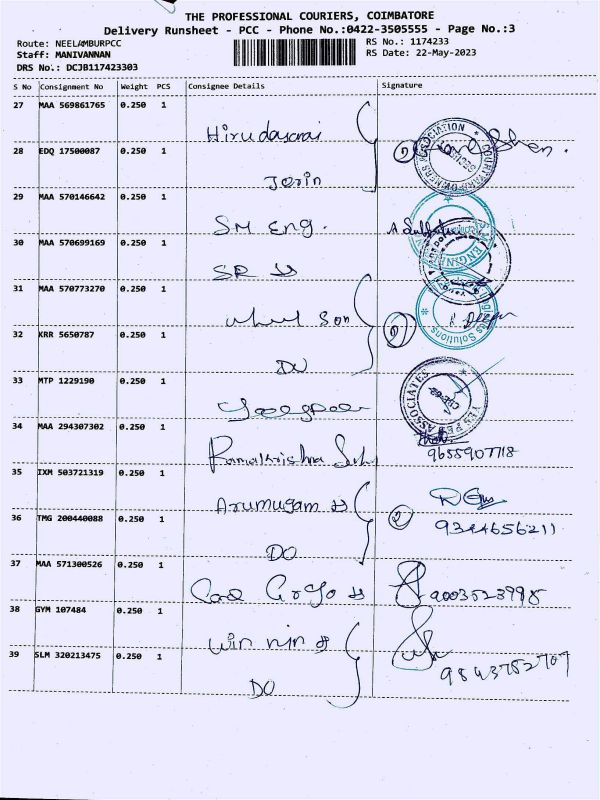 THE PROFESSIONAL COURIERS, COIMBATORE
Delivery Runsheet - PCC - Phone No.:0422-3505555 - Page No.:3
Route: NEELAMBURPCC
RS No.: 1174233
Staff: MANIVANNAN
RS Date: 22-May-2023
DRS No.: DCJB117423303
S No Consignment No Weight PCS Consignee Details Signature
27 MAA 569861765 0.250 1
28 EDQ 17500087 0.250 1
Jerin
29 MAA 570146642 0.250 1
SM Eng.
30 MAA 570699169 0.250 1
SR
31 MAA 570773270 0.250 1
Son
32 KRR 5650787 0.250 1
DO
33 MTP 1229190 0.250 1
ASSOCIATES
34 MAA 294307302 0.250 1
Ramakrishna
9655907718
35 IXM 503721319 0.250 1
Arumugam
36 TMG 200440088 0.250 1
2
9344656211
DO
37 MAA 571300526 0.250 1
9003523998
38 GYM 107484 0.250 1
Win win
39 SLM 320213475 0.250 1
9843752707
DO